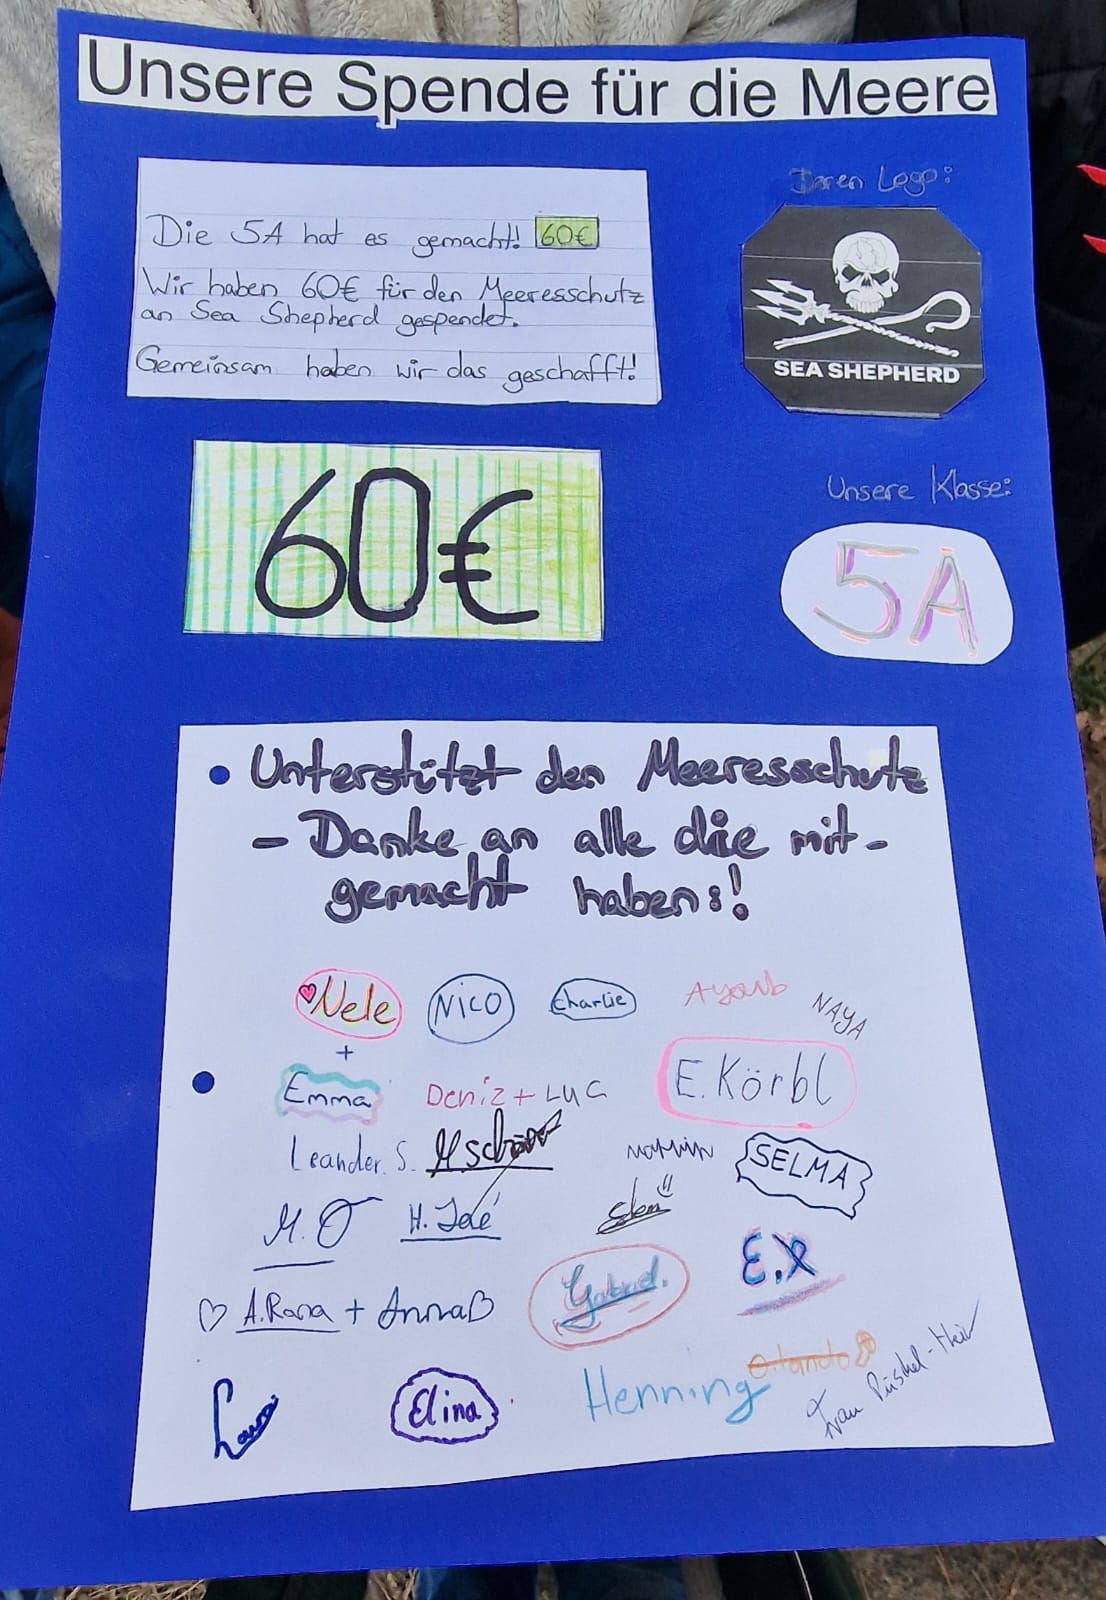 Unsere Spende für die Meere
Die 5A hat es gemacht! 60€
Wir haben 60€ für den Meeresschutz
an Sea Shepherd gespendet.
Gemeinsam haben wir das geschafft!
Deren Logo:
SEA SHEPHERD
60€
Unsere Klasse:
5A
Unterstützt den Meeresschutz
- Danke an alle die mit-
gemacht haben:!
Nele Nico Charlie Ayoub NAYA
+
Emma Deniz + Luc E. Körbl
Leander. S. SELMA
M. O H.
A. Rana + Anna Gabriel. E.X
Laura Elina Henning Orlando
Frau